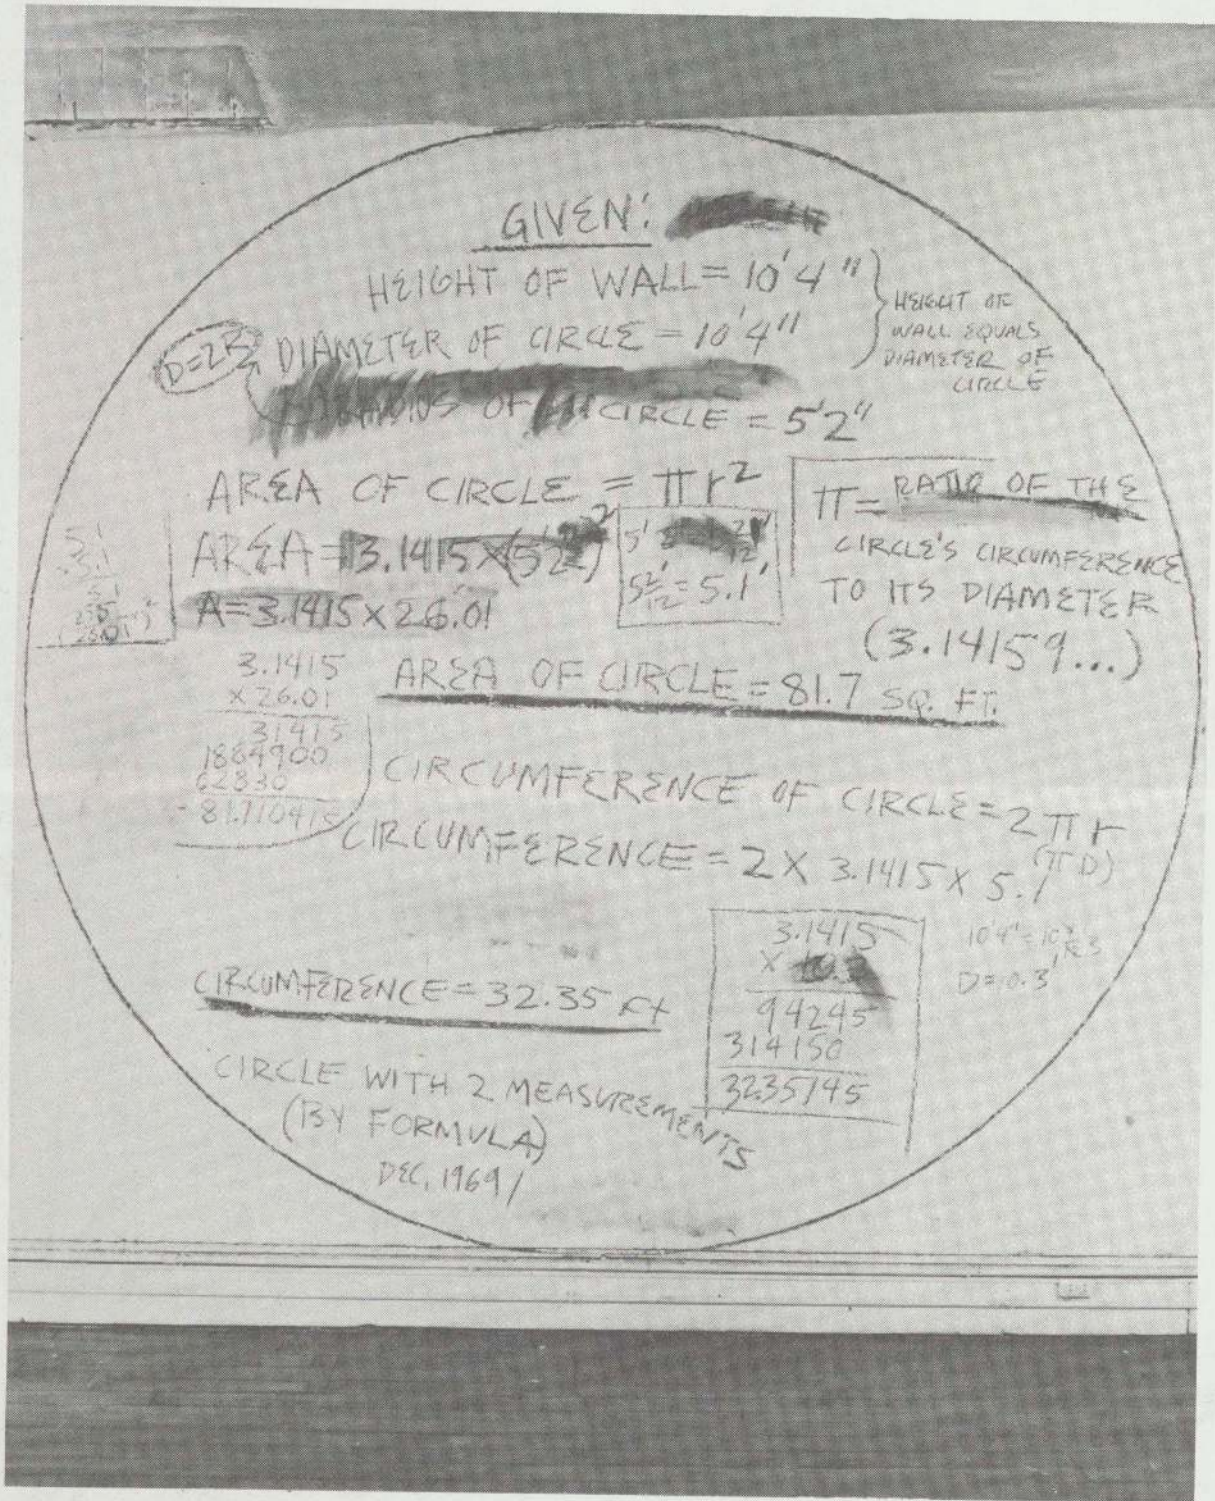 GIVEN:
HEIGHT OF WALL = 10'4"
DIAMETER OF CIRCLE = 10'4"
HEIGHT OF
WALL EQUALS
DIAMETER OF
CIRCLE
D=2R
RADIUS OF CIRCLE = 5'2"
AREA OF CIRCLE = π r²
AREA = 3.1415 × (5'2")²
A = 3.1415 × 26.01
5 2/12' = 5.1'
π = RATIO OF THE
CIRCLE'S CIRCUMFERENCE
TO ITS DIAMETER
(3.14159...)
5.1
5.1
51
255
26.01
3.1415
× 26.01
31415
1884900
62830
81.710415
AREA OF CIRCLE = 81.7 SQ. FT.
CIRCUMFERENCE OF CIRCLE = 2 π r
(π D)
CIRCUMFERENCE = 2 × 3.1415 × 5.1
3.1415
× 10.3
94245
314150
32.35745
10'4"=10
D=10.3'
CIRCUMFERENCE = 32.35 FT
CIRCLE WITH 2 MEASUREMENTS
(BY FORMULA)
DEC, 1969/